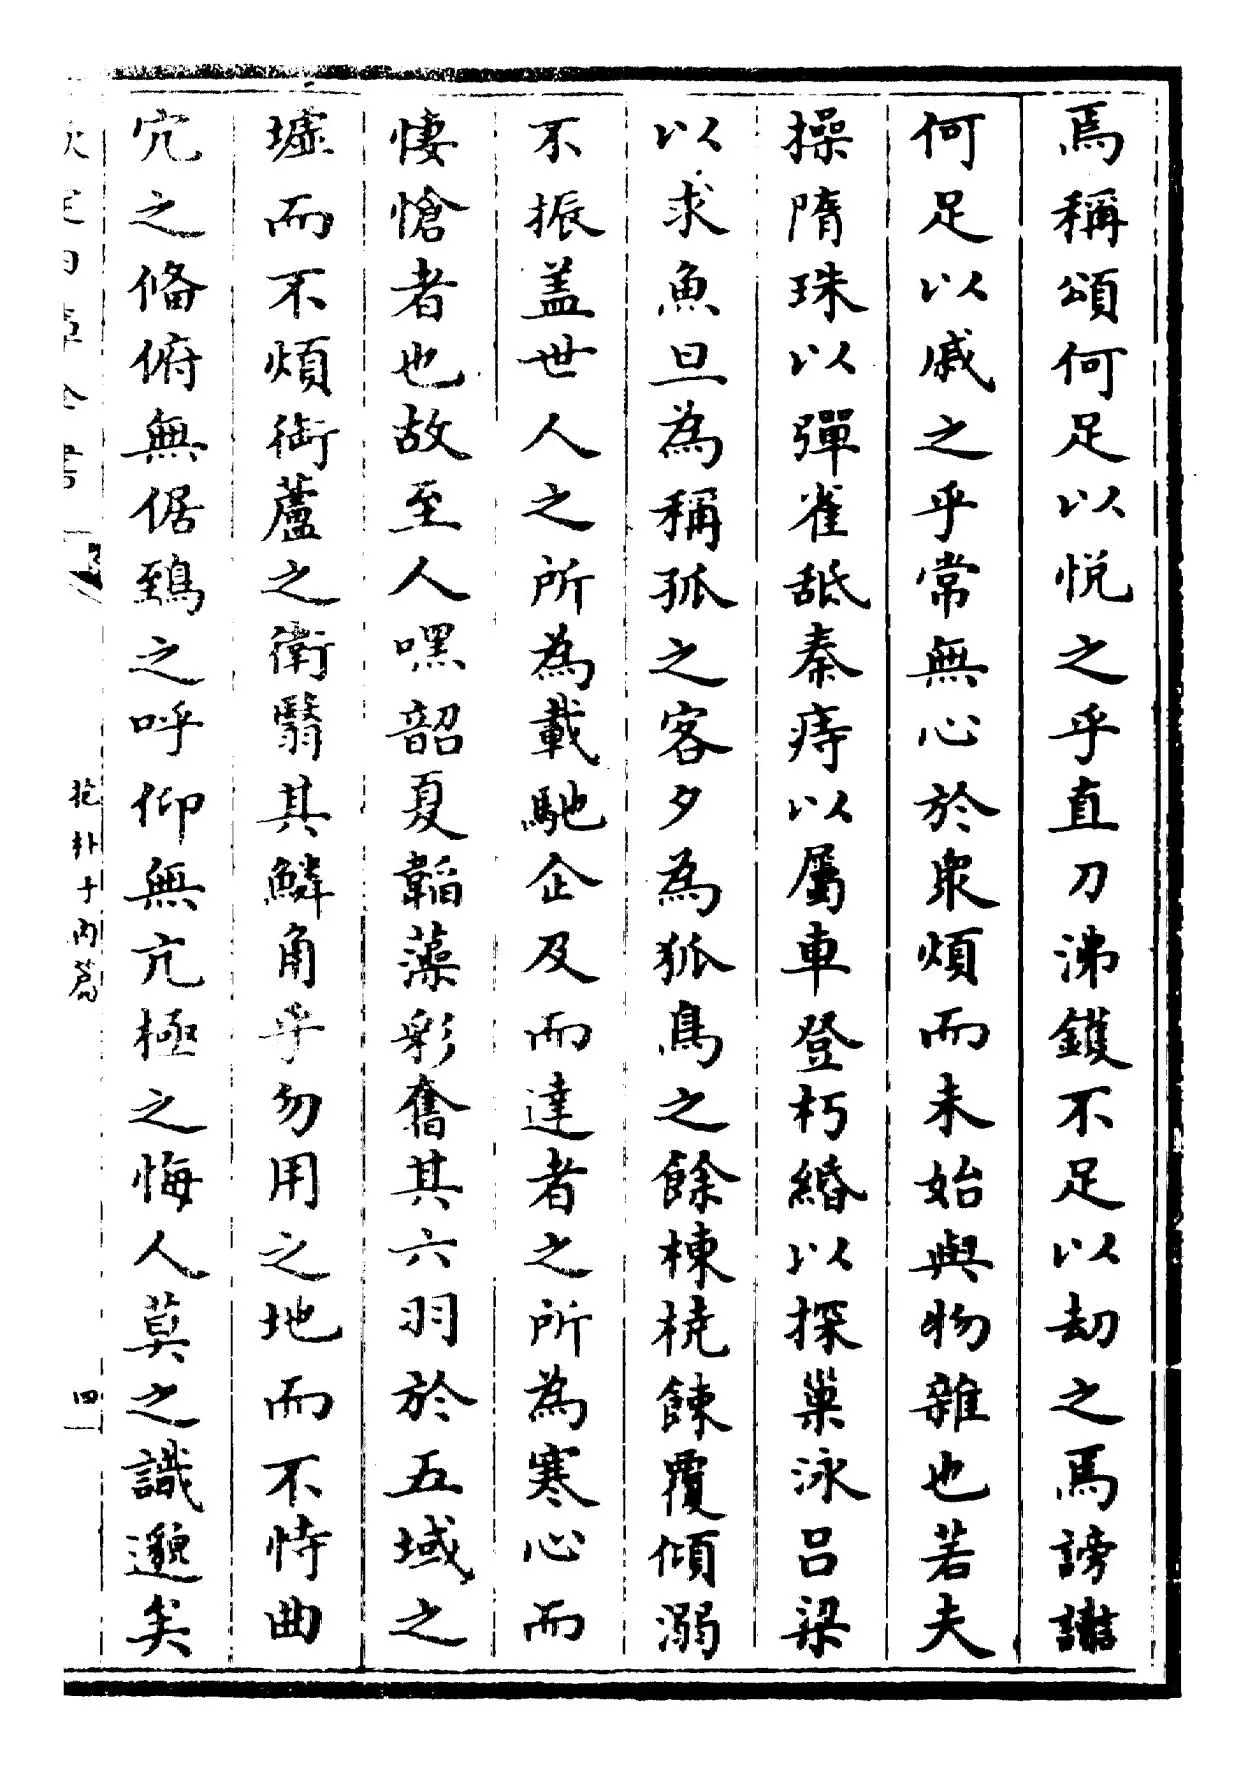 焉稱頌何足以悦之乎直刀沸鑊不足以劫之焉謗讟
何足以戚之乎常無心於衆煩而未始與物雜也若夫
操隋珠以彈雀舐秦痔以屬車登朽緡以探巢泳吕梁
以求魚旦為稱孤之客夕為狐鳥之餘棟橈餗覆傾溺
不振盖世人之所為載馳企及而達者之所為寒心而
悽愴者也故至人嘿韶夏韜藻彩奮其六羽於五域之
墟而不煩銜蘆之衛翳其鱗角乎勿用之地而不恃曲
穴之俻俯無倨鵄之呼仰無亢極之悔人莫之識邈矣
欽定四庫全書
抱朴子内篇
四